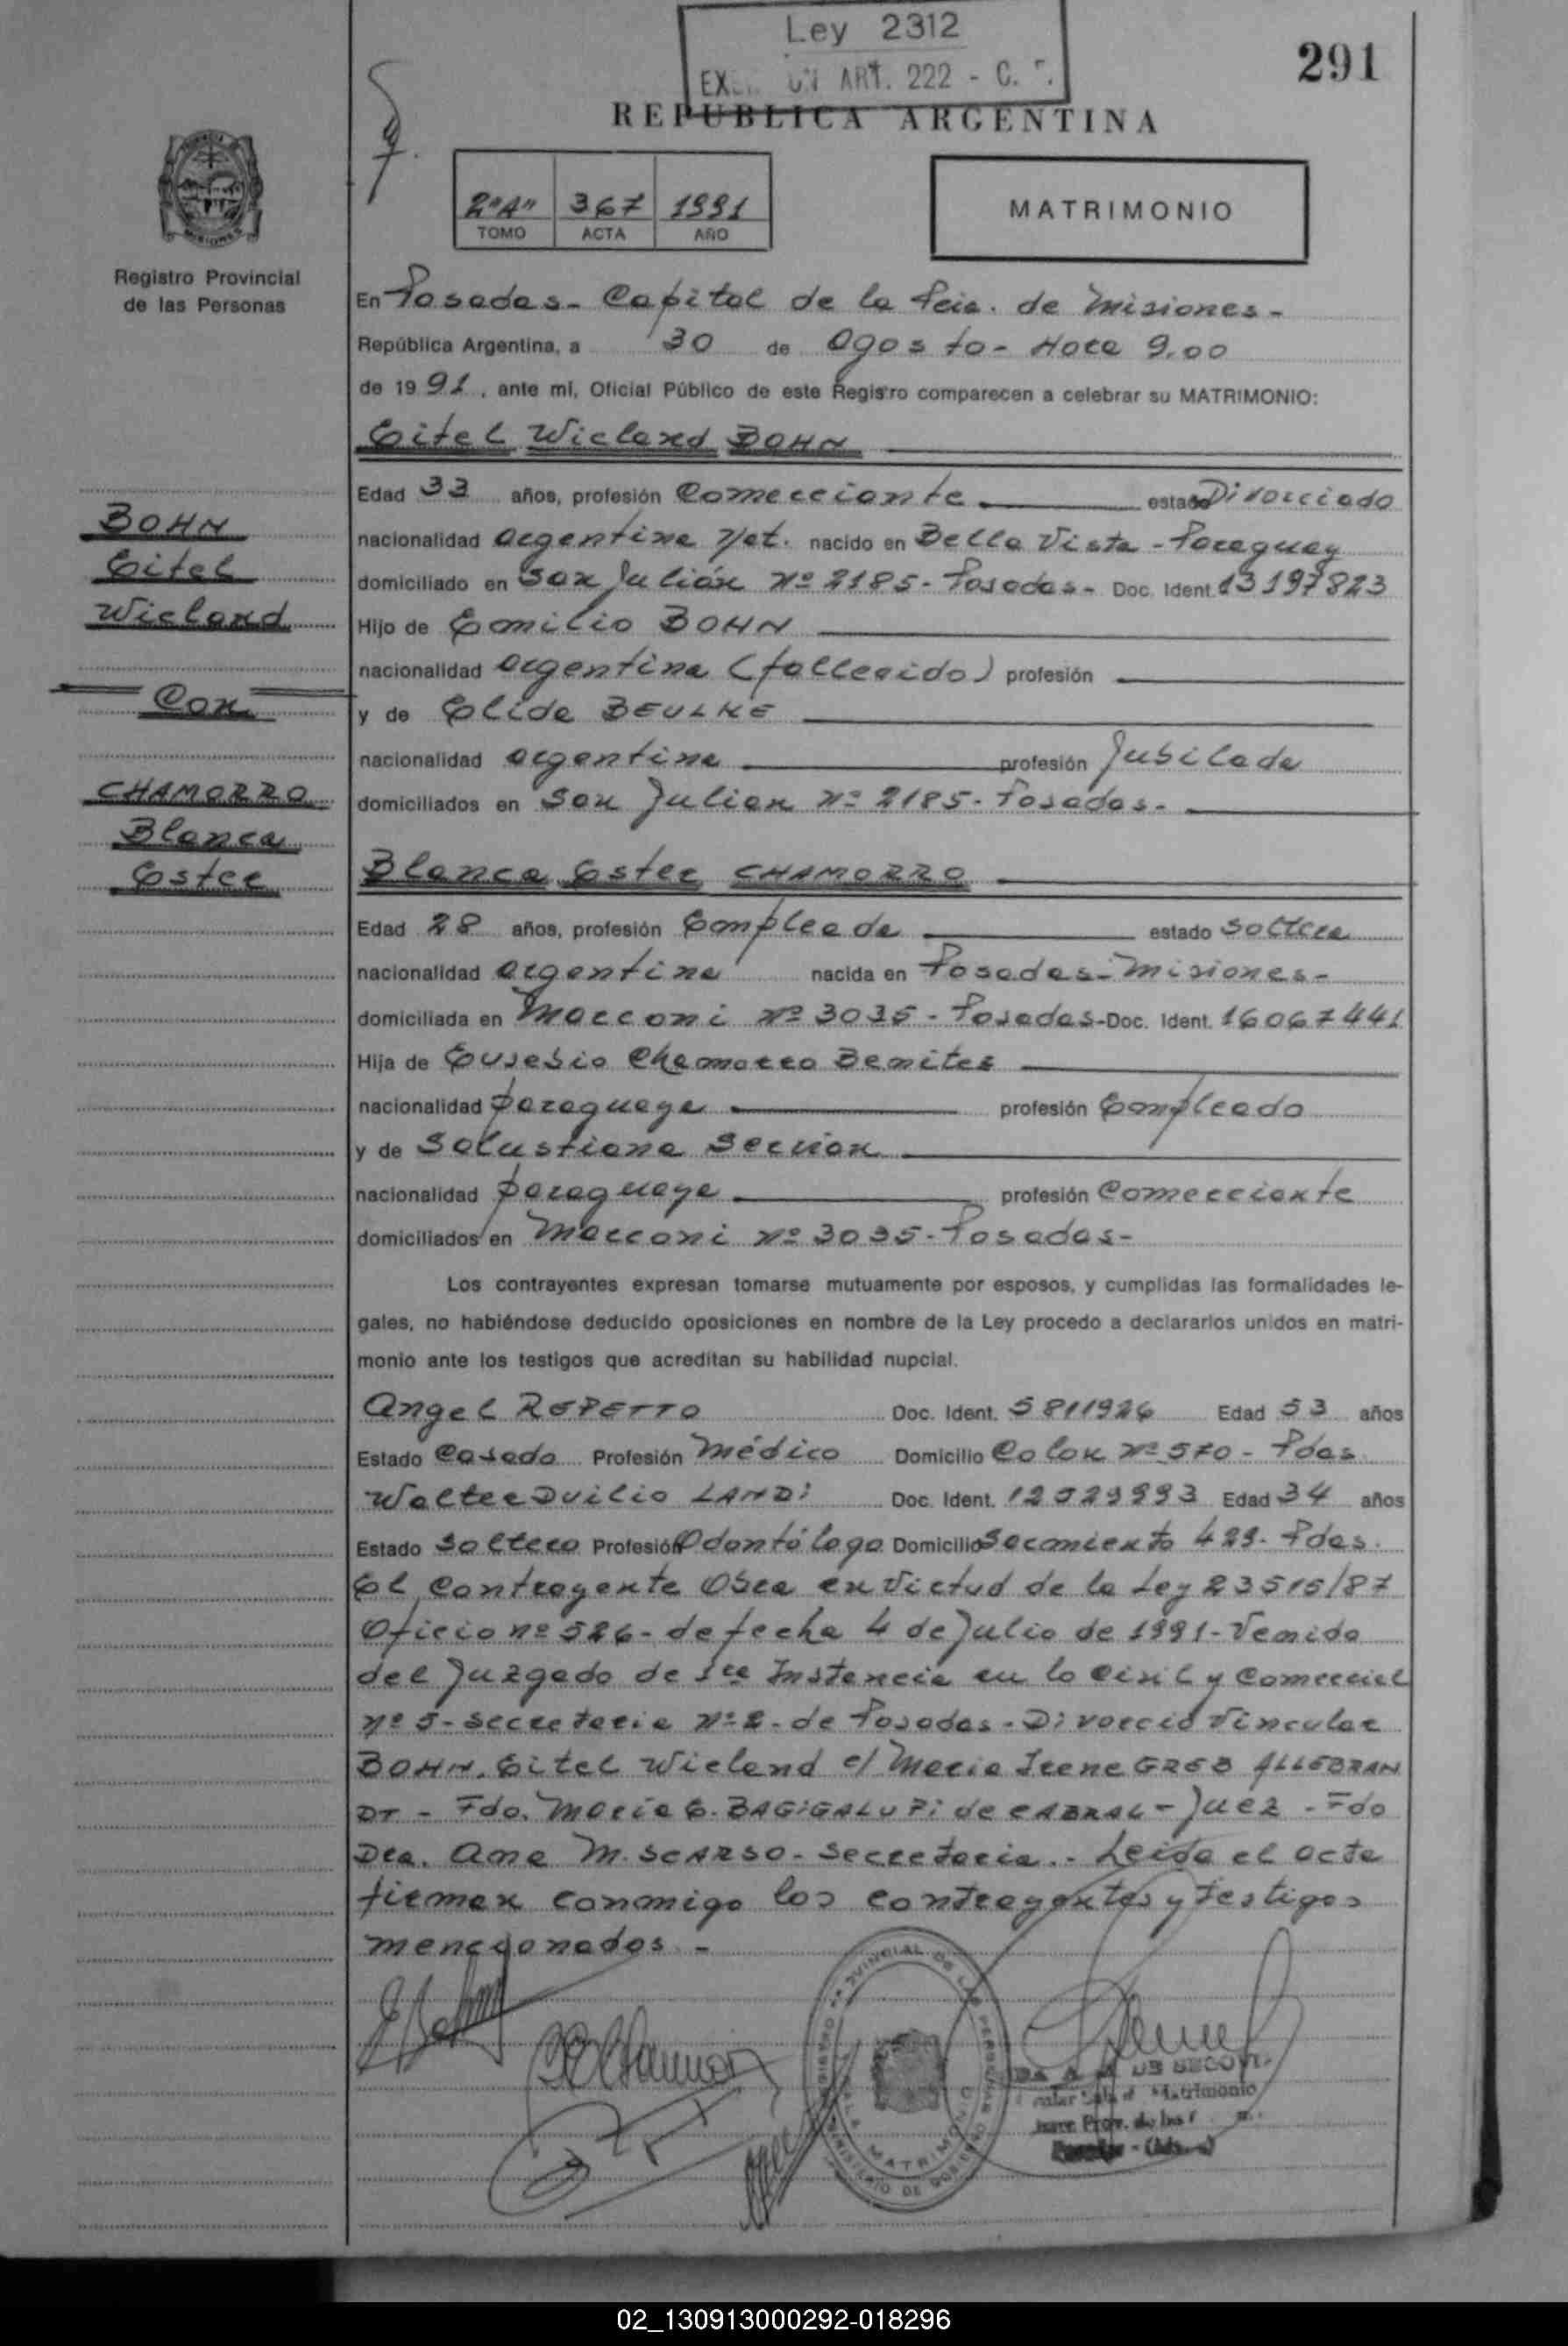 Ley 2312
ART. 222 - C.
291
REPUBLICA ARGENTINA
2º"A" 367 1991
TOMO ACTA AÑO
MATRIMONIO
Registro Provincial
de las Personas
En Posadas - Capital de la Pcia. de Misiones -
República Argentina, a 30 de Agosto - Hora 9.00
de 19 91, ante mi, Oficial Público de este Registro comparecen a celebrar su MATRIMONIO:
Eitel Wieland BOHN
Edad 33 años, profesión Comerciante estado Divorciado
nacionalidad argentina Nat. nacido en Bella Vista - Paraguay
domiciliado en San Julián Nº 2185 - Posadas - Doc. Ident. 13197823
Hijo de Emilio BOHN
nacionalidad argentina (fallecido) profesión
y de Elida BEULKE
nacionalidad argentina profesión Jubilada
domiciliados en San Julian Nº 2185 - Posadas -
BOHN
Eitel
Wieland
Con
CHAMORRO
Blanca
Ester
Blanca Ester CHAMORRO
Edad 28 años, profesión Empleada estado soltera
nacionalidad argentina nacida en Posadas - Misiones -
domiciliada en Marconi Nº 3035 - Posadas - Doc. Ident. 16067441
Hija de Eusebio Chamorro Benitez
nacionalidad paraguaya profesión Empleado
y de Salustiana Servian
nacionalidad paraguaya profesión Comerciante
domiciliados en Marconi Nº 3035 - Posadas -
Los contrayentes expresan tomarse mutuamente por esposos, y cumplidas las formalidades le-
gales, no habiéndose deducido oposiciones en nombre de la Ley procedo a declararlos unidos en matri-
monio ante los testigos que acreditan su habilidad nupcial.
Angel REPETTO Doc. Ident. 5811926 Edad 53 años
Estado Casado Profesión Médico Domicilio Colon Nº 570 - Pdas.
Walter Duilio LANDi Doc. Ident. 12529993 Edad 34 años
Estado Soltero Profesión Odontólogo Domicilio Sarmiento 429 - Pdas.
El Contrayente Obra en Virtud de la Ley 23515/87
Oficio nº 526 - de fecha 4 de Julio de 1991 - Venido
del Juzgado de 1ra Instancia en lo Civil y Comercial
Nº 5 - secretaria Nº 2 - de Posadas - Divorcio Vincular
BOHN, Eitel Wieland c/ Maria Irene GREB ALLEBRAN
DT - Fdo. Maria E. BAGiGALUPi de CABRAL - Juez - Fdo
Dra. Ana M. SCARSO - Secretaria. - Leida el acta
firman conmigo los contrayentes y testigos
mencionados -
SALA MATRIMONIO
MINISTERIO DE GOBIERNO
DE SEGOVI
Matrimonio
Prov. de las
02_130913000292-018296